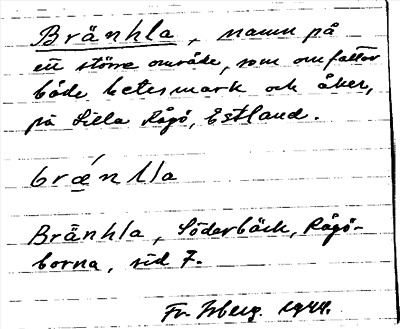 Bränhla, namn på
ett större område, som omfattar
både betesmark och åker,
på Lilla Rågö, Estland.
brǽnlla
Bränhla, Söderbäck, Rågö-
borna, sid 7.
Fr. 1944.